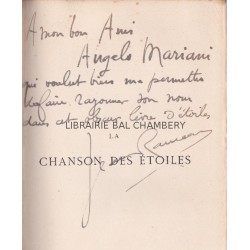 A mon bon Ami
Angelo Mariani
qui voulut bien me permettre
de faire rayonner son nom
dans cet obscur livre d'étoiles
LIBRAIRIE BAL CHAMBERY
LA
CHANSON DES ÉTOILES
Jean Rameau